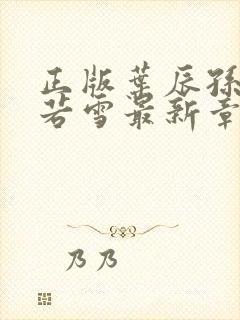 正版叶辰孙
若雪最新章
乃乃